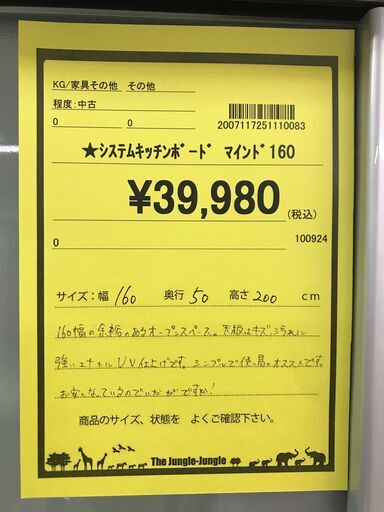 KG/家具その他 その他
程度:中古
0 0
2007117251110083
★システムキッチンﾎﾞｰﾄﾞ マインﾄﾞ160
¥39,980
(税込)
0
100924
サイズ:幅 160 奥行 50 高さ 200 cm
160幅の余裕のあるオープンスペース。天板はキズ、汚れに
強いエナメルUV仕上げです。シンプルで使い易くオススメです。
お安くなっているのでいかがですか!
商品のサイズ、状態を よくご確認下さい。
The Jungle-Jungle